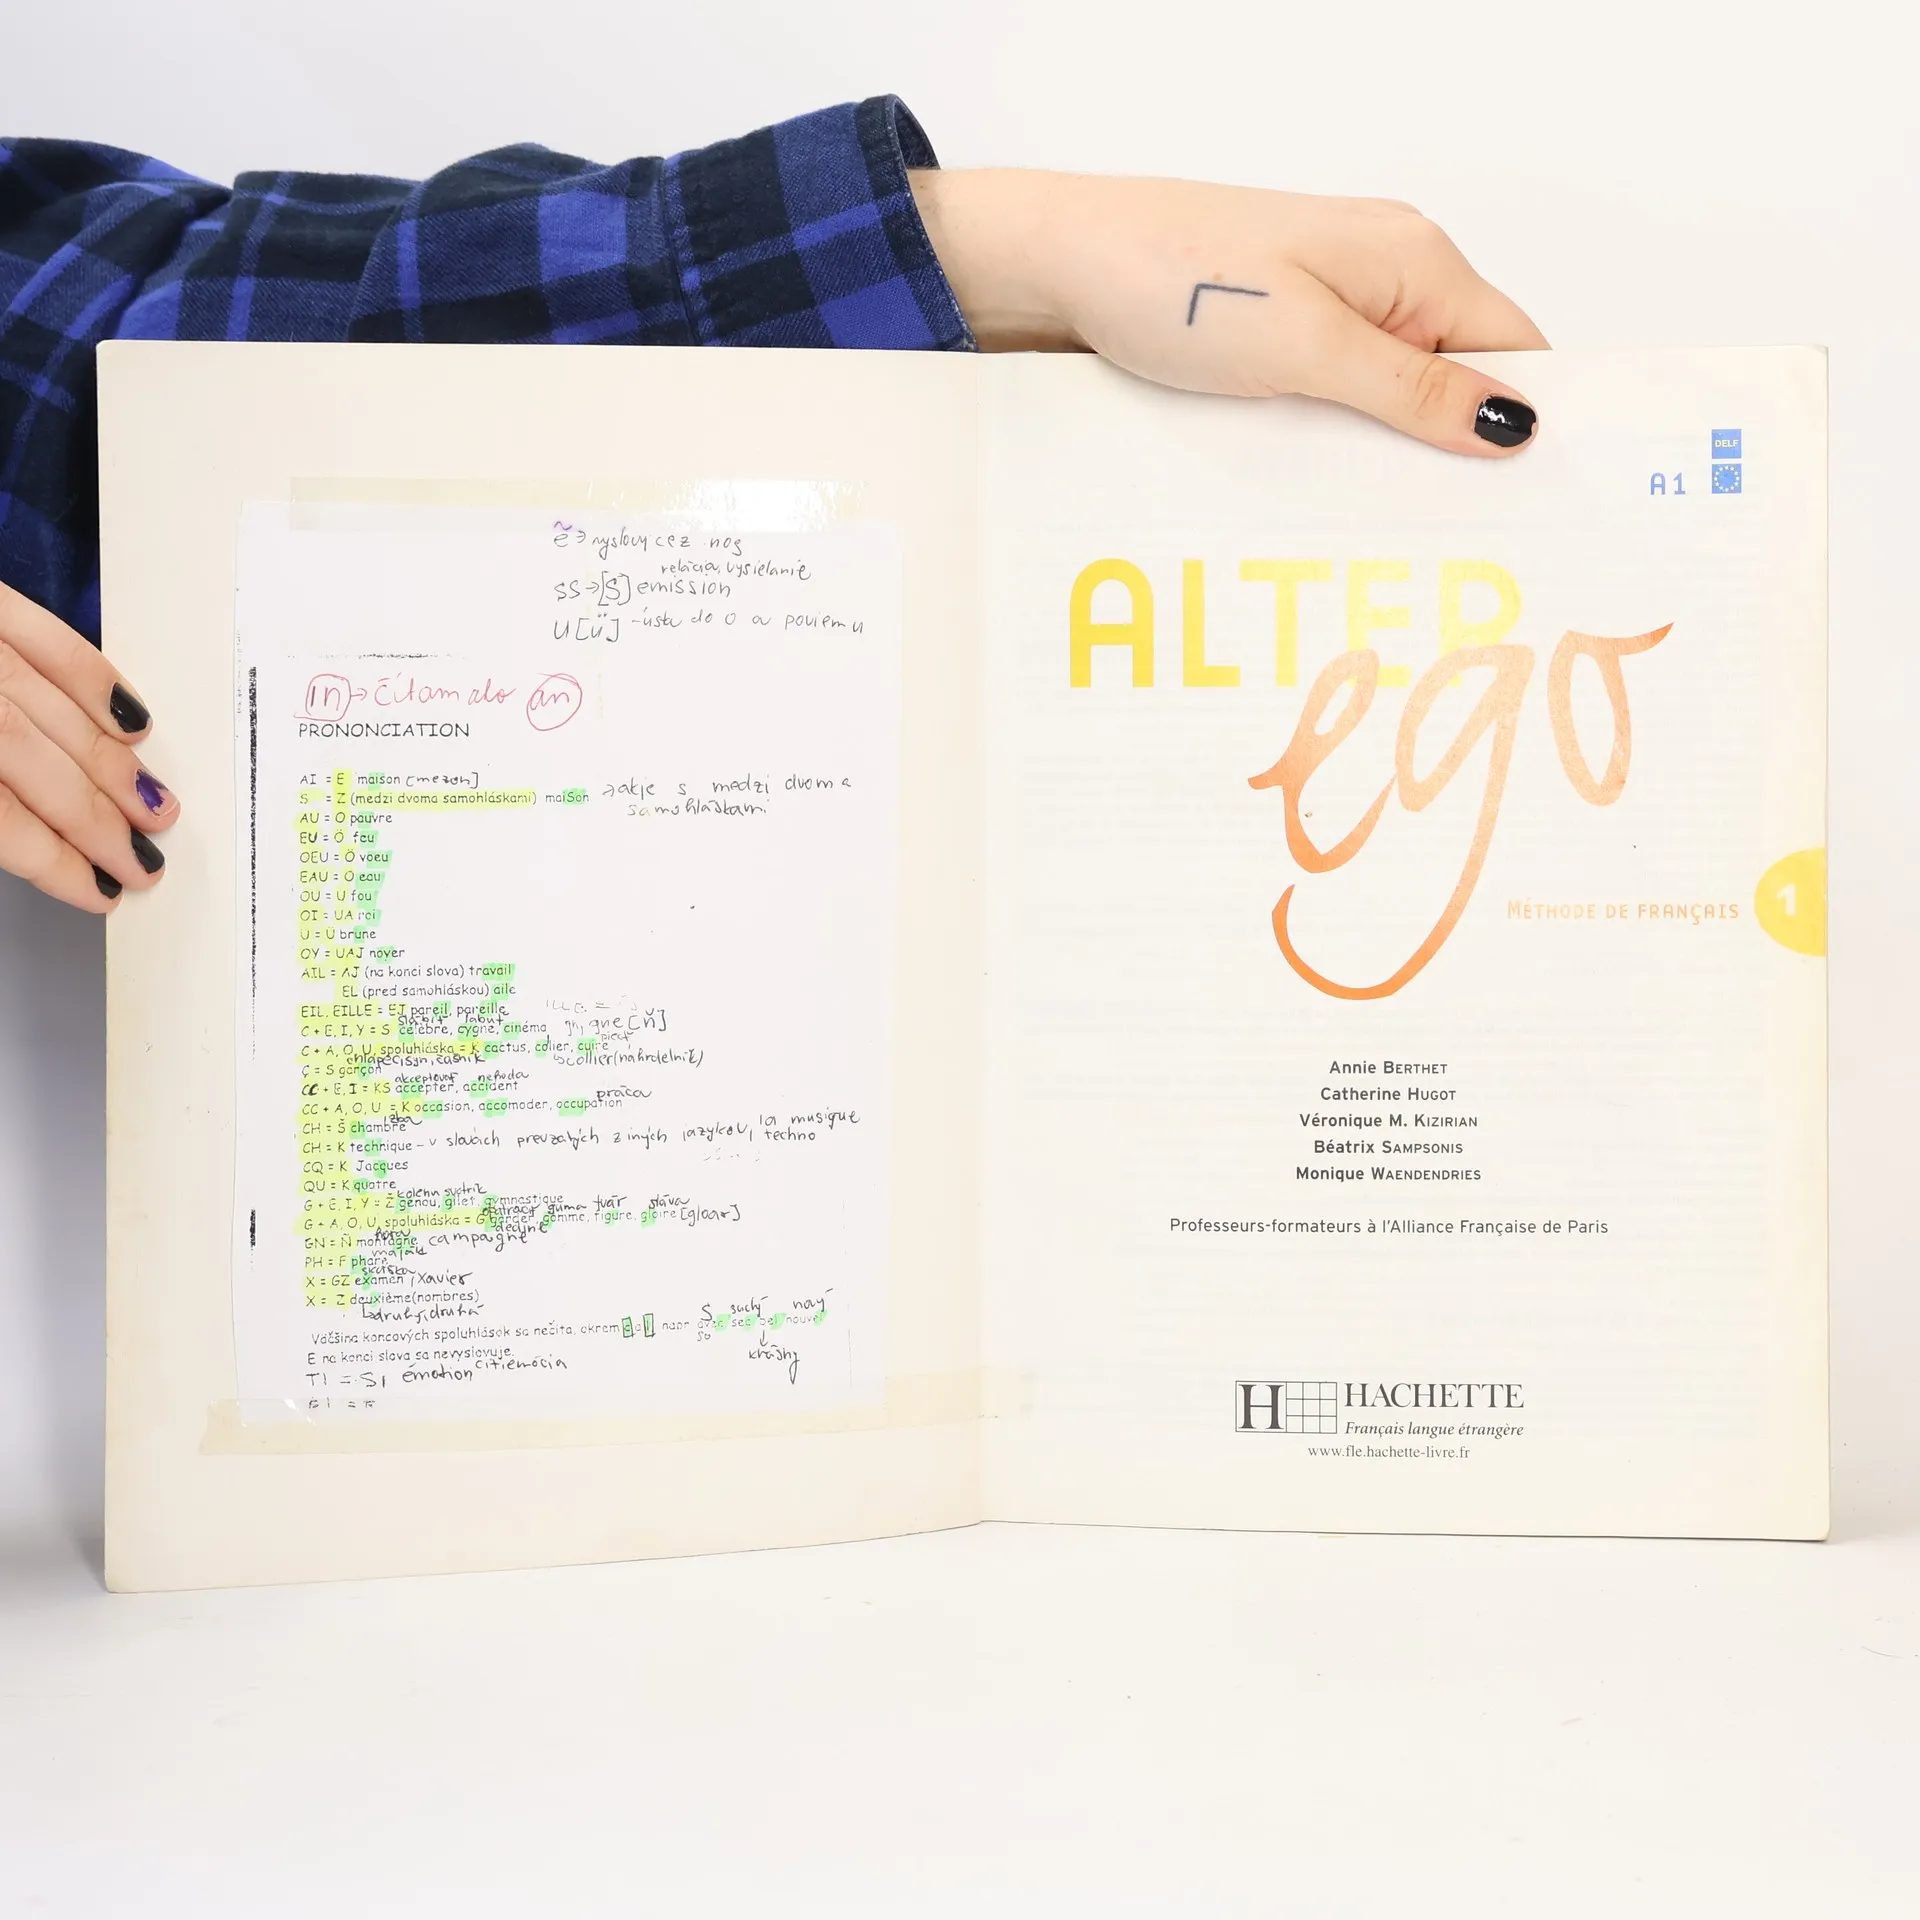 ẽ → vyslov cez nos
relácia, vysielanie
SS → [S] emission
U [ü] - ústa do o a poviem u
in → čítam ako an
PRONONCIATION
AI = E maison [mezon]
S = Z (medzi dvoma samohláskami) maiSon → ak je s medzi dvoma
samohláskami
AU = O pauvre
EU = Ö feu
OEU = Ö voeu
EAU = O eau
OU = U fou
OI = UA roi
U = Ü brune
OY = UAJ noyer
AIL = AJ (na konci slova) travail
EL (pred samohláskou) aile
EIL, EILLE = EJ pareil, pareille
slabiť labuť
C + E, I, Y = S célèbre, cygne, cinéma gn, gne [ň]
piecť
C + A, O, U, spoluhláska = K cactus, colier, cuire
chlapec, syn, čašník collier (náhrdelník)
Ç = S garçon
akceptovať nehoda
CC + E, I = KS accepter, accident
práca
CC + A, O, U = K occasion, accomoder, occupation
izba
CH = Š chambre
CH = K technique - v slovách prevzatých z iných jazykov, la musique
techno
CQ = K Jacques
QU = K quatre
koleno svetrík
G + E, I, Y = Ž genou, gilet, gymnastique
opatrovať guma tvár sláva
G + A, O, U, spoluhláska = G garder, gomme, figure, gloire [gloar]
hora dedina
GN = Ň montagne, campagne
maják
PH = F phare
skúška
X = GZ examen, Xavier
X = Z deuxième (nombres)
druhý, druhá
S suchý nový
Väčšina koncových spoluhlások sa nečíta, okrem c a l napr avec sec bel nouvel
so
krásny
E na konci slova sa nevyslovuje.
TI = SI émotion cit, emócia
DELF
A1
ALTER
ego
MÉTHODE DE FRANÇAIS
1
Annie BERTHET
Catherine HUGOT
Véronique M. KIZIRIAN
Béatrix SAMPSONIS
Monique WAENDENDRIES
Professeurs-formateurs à l'Alliance Française de Paris
H HACHETTE
Français langue étrangère
www.fle.hachette-livre.fr